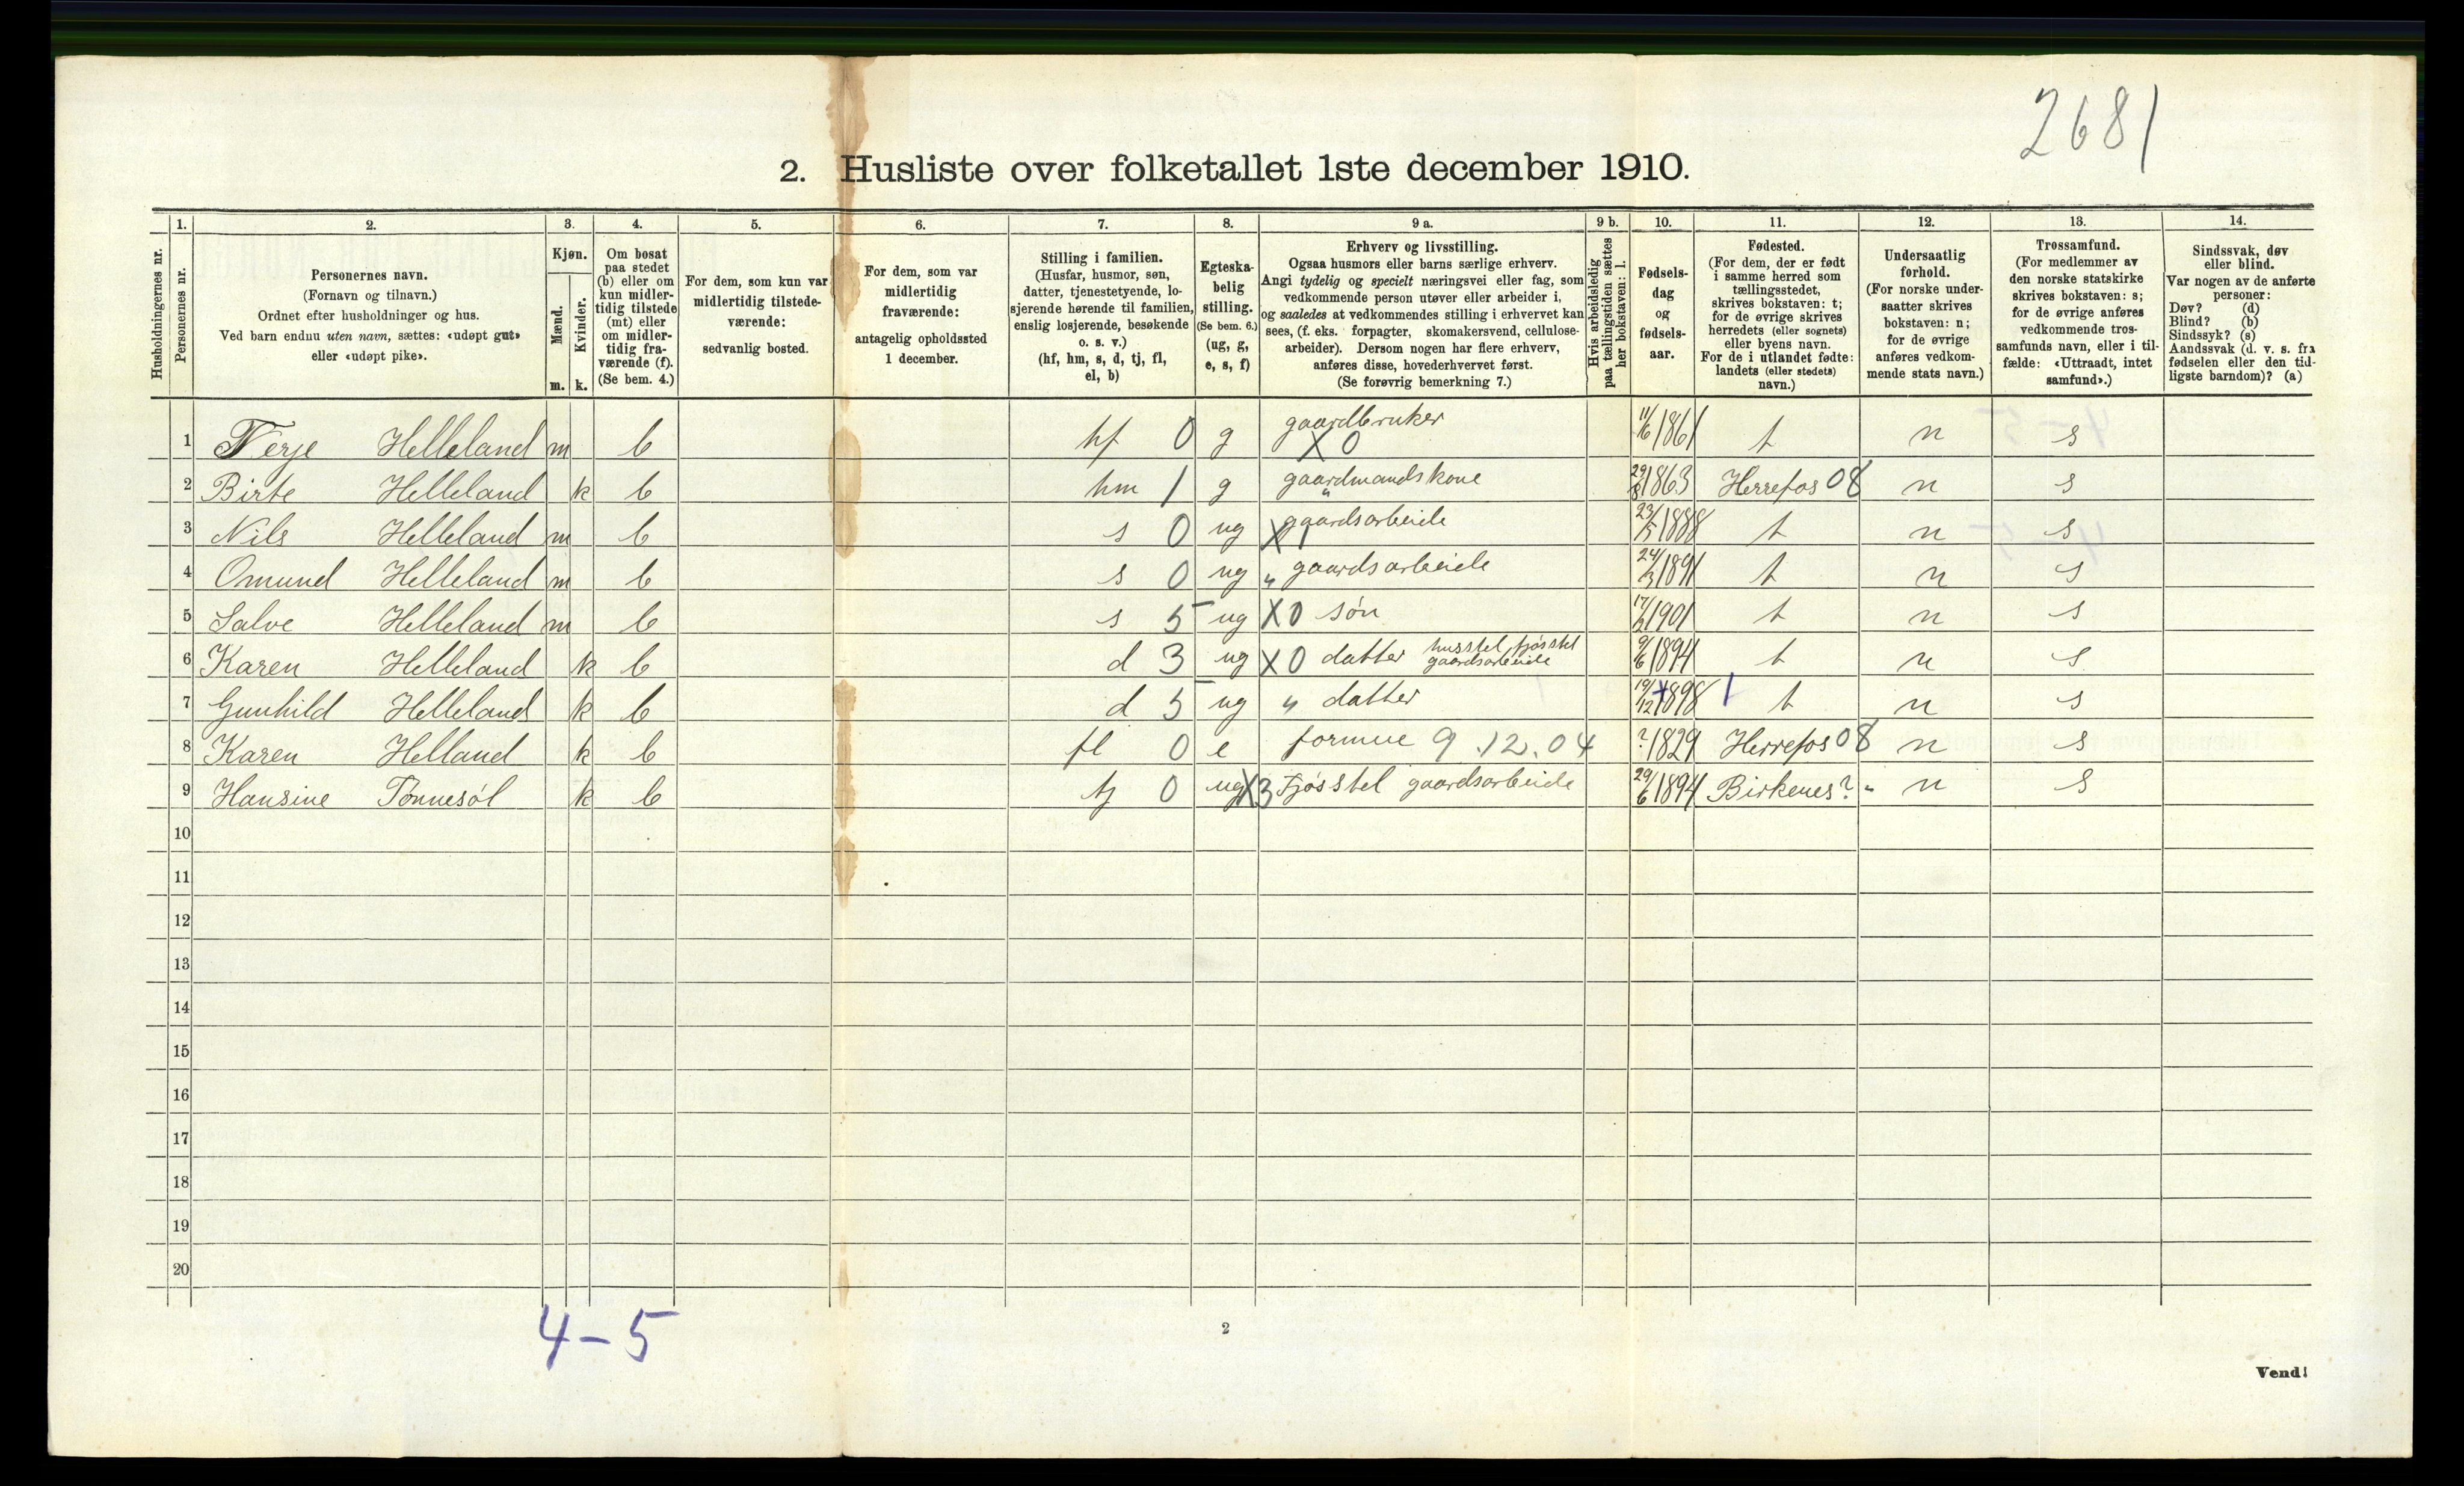 2681
2. Husliste over folketallet 1ste december 1910.
Husholdningernes nr.
1. Personernes nr.
2. Personernes navn.
(Fornavn og tilnavn.)
Ordnet efter husholdninger og hus.
Ved barn endnu uten navn, sættes: «udøpt gut»
eller «udøpt pike».
3. Kjøn.
Mænd. m.
Kvinder. k.
4. Om bosat
paa stedet
(b) eller om
kun midler-
tidig tilstede
(mt) eller
om midler-
tidig fra-
værende (f).
(Se bem. 4.)
5. For dem, som kun var
midlertidig tilstede-
værende:
sedvanlig bosted.
6. For dem, som var
midlertidig
fraværende:
antagelig opholdssted
1 december.
7. Stilling i familien.
(Husfar, husmor, søn,
datter, tjenestetyende, lo-
sjerende hørende til familien,
enslig losjerende, besøkende
o. s. v.)
(hf, hm, s, d, tj, fl,
el, b)
8. Egteska-
belig
stilling.
(Se bem. 6.)
(ug, g,
e, s, f)
9 a. Erhverv og livsstilling.
Ogsaa husmors eller barns særlige erhverv.
Angi tydelig og specielt næringsvei eller fag, som
vedkommende person utøver eller arbeider i,
og saaledes at vedkommendes stilling i erhvervet kan
sees, (f. eks. forpagter, skomakersvend, cellulose-
arbeider). Dersom nogen har flere erhverv,
anføres disse, hovederhvervet først.
(Se forøvrig bemerkning 7.)
9 b. Hvis arbeidsledig
paa tællingstiden sættes
her bokstaven: l.
10. Fødsels-
dag
og
fødsels-
aar.
11. Fødested.
(For dem, der er født
i samme herred som
tællingsstedet,
skrives bokstaven: t;
for de øvrige skrives
herredets (eller sognets)
eller byens navn.
For de i utlandet fødte:
landets (eller stedets)
navn.)
12. Undersaatlig
forhold.
(For norske under-
saatter skrives
bokstaven: n;
for de øvrige
anføres vedkom-
mende stats navn.)
13. Trossamfund.
(For medlemmer av
den norske statskirke
skrives bokstaven: s;
for de øvrige anføres
vedkommende tros-
samfunds navn, eller i til-
fælde: «Uttraadt, intet
samfund».)
14. Sindssvak, døv
eller blind.
Var nogen av de anførte
personer:
Døv? (d)
Blind? (b)
Sindssyk? (s)
Aandssvak (d. v. s. fra
fødselen eller den tid-
ligste barndom)? (a)
1 Terje Helleland m b hf 0 g gaardbruker X 0 11/6 1861 t n s
2 Birte Helleland k b hm 1 g gaardmandskone " 29/8 1863 Herrefos 08 n s
3 Nils Helleland m b s 0 ug X 1 gaardsarbeide 23/5 1888 t n s
4 Omund Helleland m b s 0 ug " gaardsarbeide 24/3 1891 t n s
5 Salve Helleland m b s 5 ug X 0 søn 17/2 1901 t n s
6 Karen Helleland k b d 3 ug X 0 datter husstel, fjøsstel gaardsarbeide 9/6 1894 t n s
7 Gunhild Helleland k b d 5 ug " datter 19/12 1898 1 t n s
8 Karen Helland k b fl 0 e formue 9.12.04 ? 1829 Herrefos 08 n s
9 Hansine Tønnesøl k b tj 0 ug X3 Fjøsstel gaardsarbeide 29/6 1894 Birkenes? " n s
10
11
12
13
14
15
16
17
18
19
20
4-5
2
Vend!